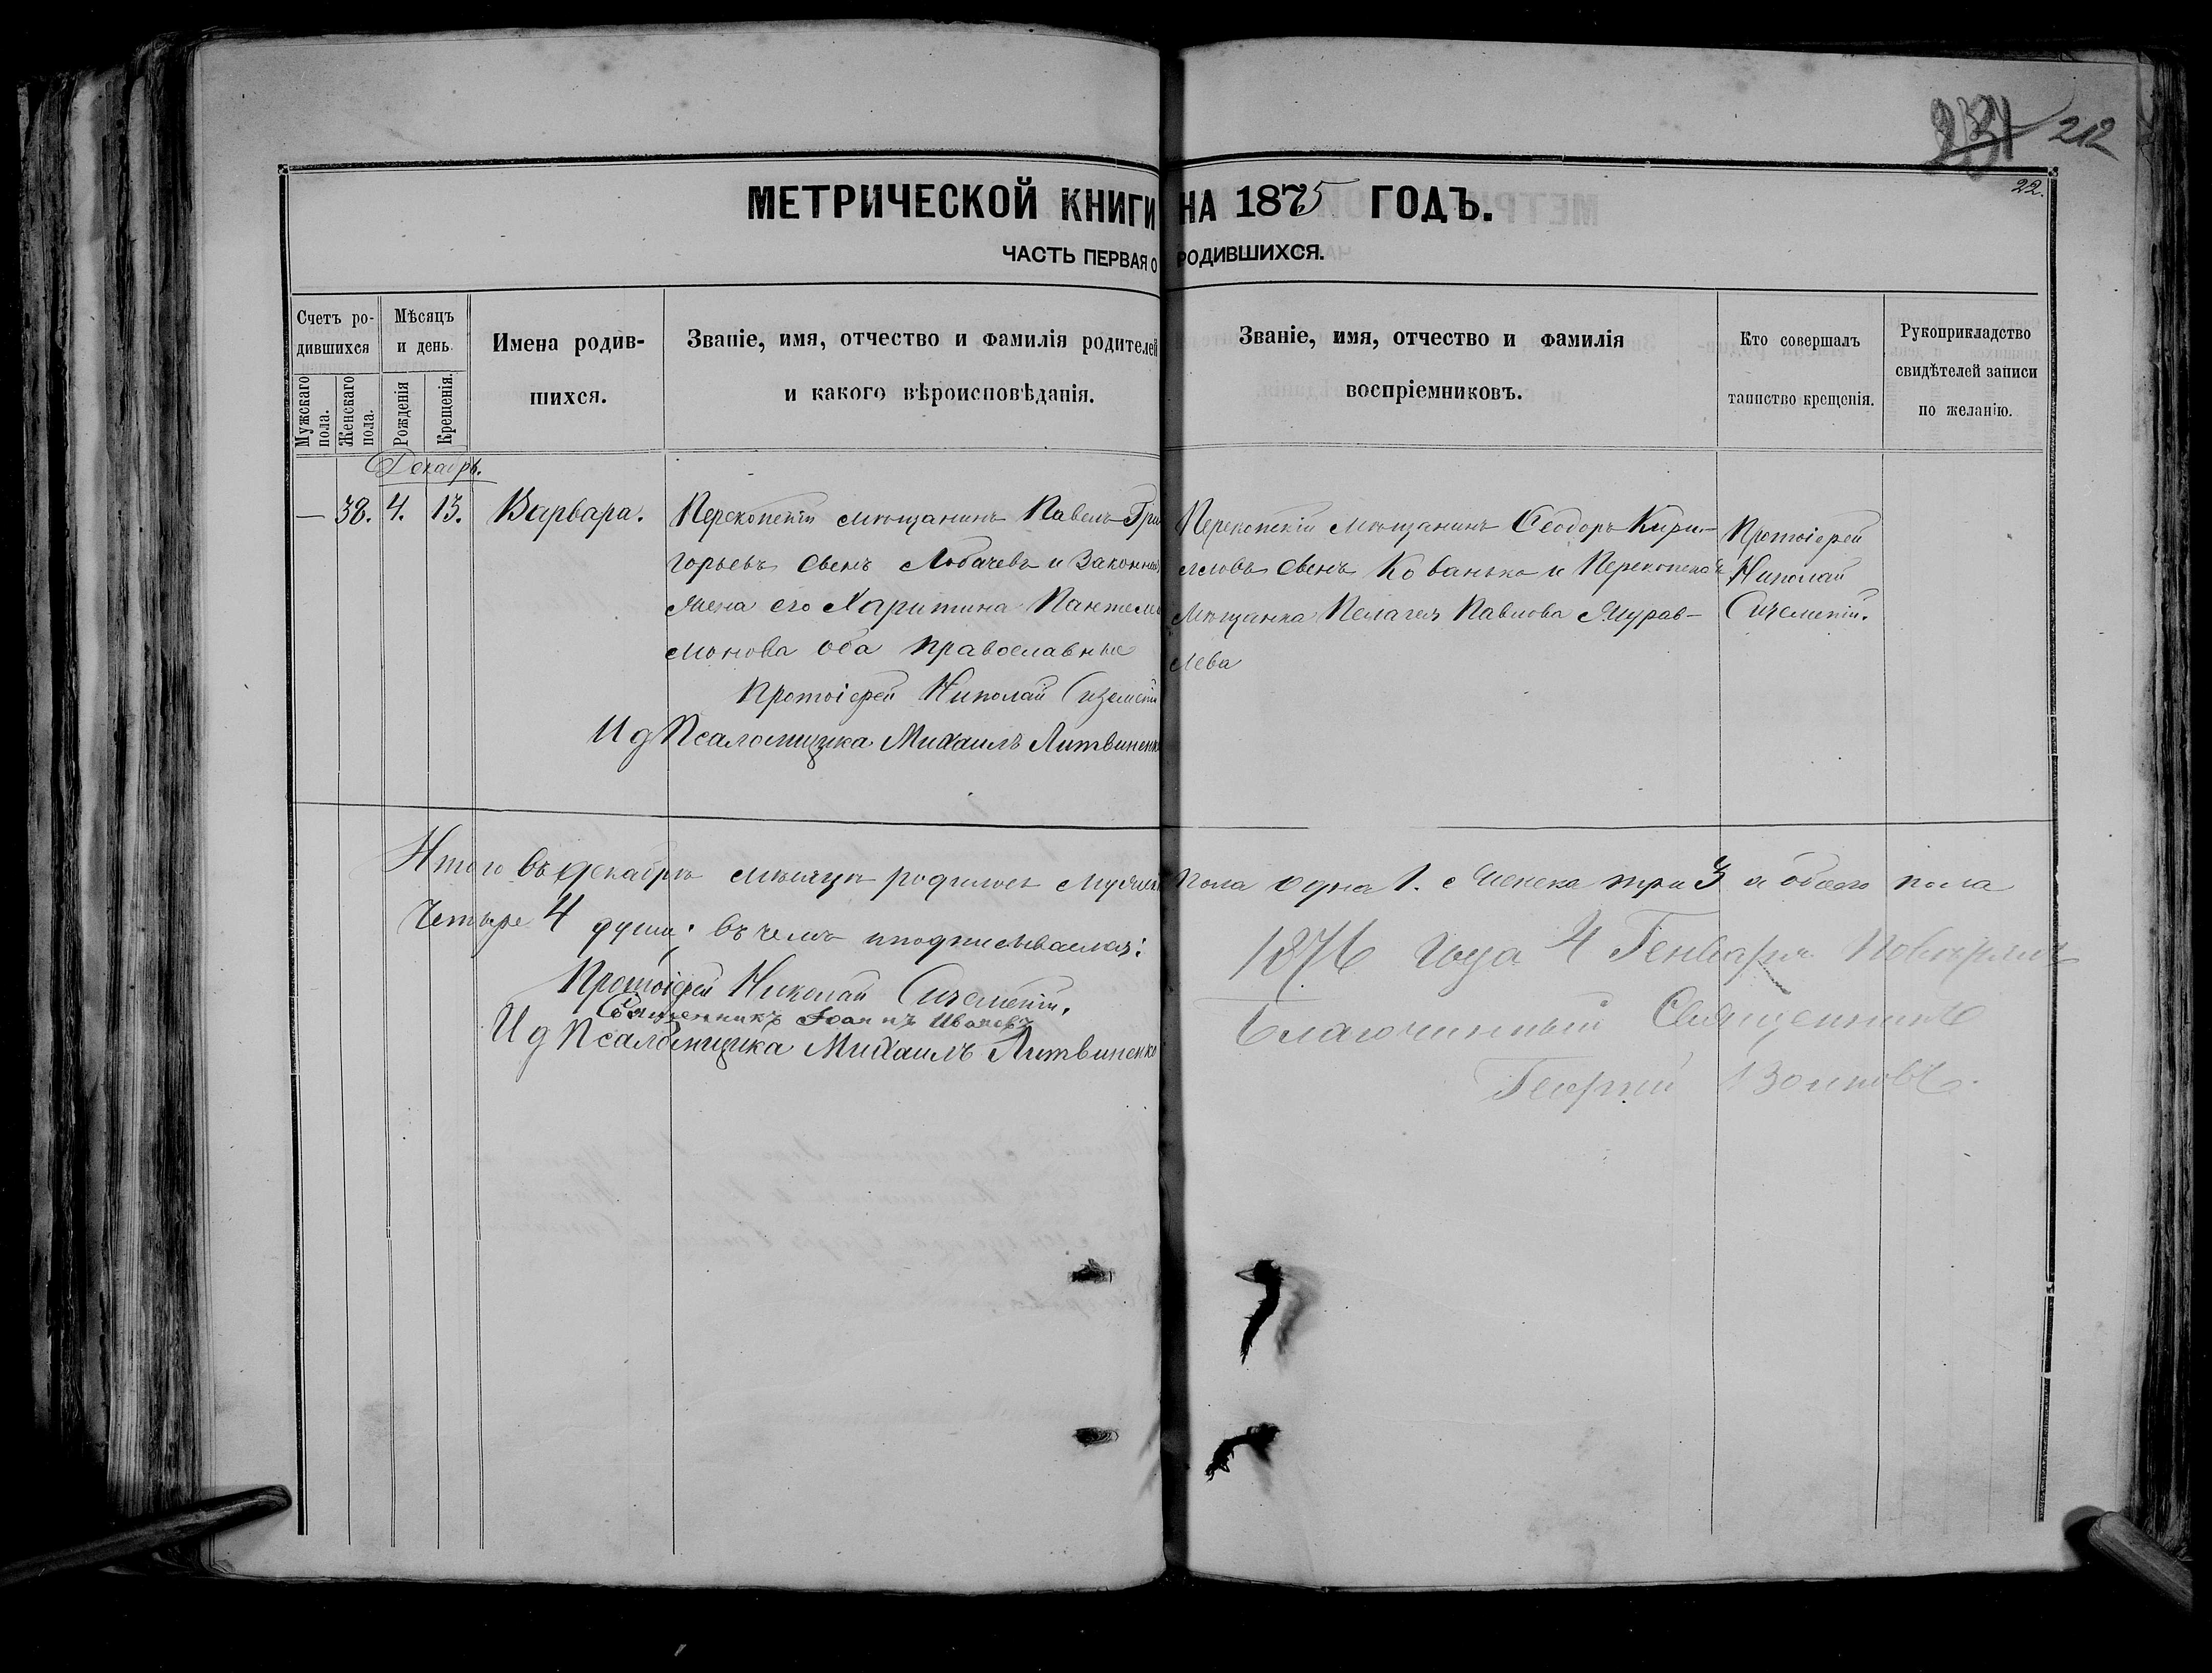 212
22.
МЕТРИЧЕСКОЙ КНИГИ НА 1875 ГОДЪ.
ЧАСТЬ ПЕРВАЯ О РОДИВШИХСЯ.
Счетъ ро-
дившихся
Мужскаго пола.
Женскаго пола.
Мѣсяцъ
и день
Рожденія
Крещенія.
Имена родив-
шихся.
Званіе, имя, отчество и фамилія родителей
и какого вѣроисповѣданія.
Званіе, имя, отчество и фамилія
воспріемниковъ.
Кто совершалъ
таинство крещенія.
Рукоприкладство
свидѣтелей записи
по желанію.
Декабрь.
— 38. 4. 13. Варвара.
Перекопскій мѣщанинъ Павелъ Гри
горьевъ сынъ Лобачевъ и законная
жена его Харитина Пантеле
монова оба православные
Протоіерей Николай
И д Псаломщика Михаилъ Литвиненко
Перекопскій мѣщанинъ Ѳеодоръ Кири-
лловъ сынъ Кованько и Перекопская
мѣщанка Пелагея Павлова Журав-
лева
Протоіерей
Николай
Итого въ декабрѣ мѣсяцѣ родилось мужеска пола одна 1. а женска три 3 а обоего пола
четыре 4 души: въ чемъ и подписываемся:
Протоіерей Николай
Священникъ Іоаннъ Ивановъ
И д Псаломщика Михаилъ Литвиненко
1876 года 4 Генваря Повѣрялъ
Благочинный Священникъ
Георгій